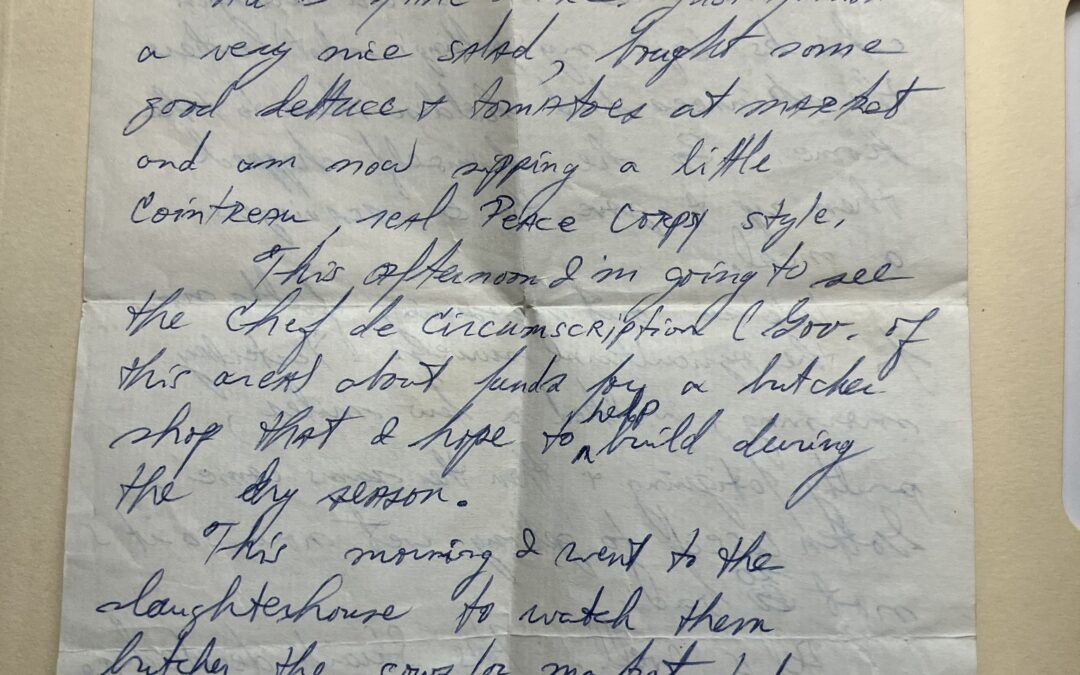 a very nice salad, bought some
good lettuce & tomatoes at market
and am now sipping a little
Cointreau real Peace Corps style.
This afternoon I'm going to see
the Chef de Circumscription (Gov. of
this area) about funds for a butcher
shop that I hope to help build during
the dry season.
This morning I went to the
slaughterhouse to watch them
butcher the cows for market